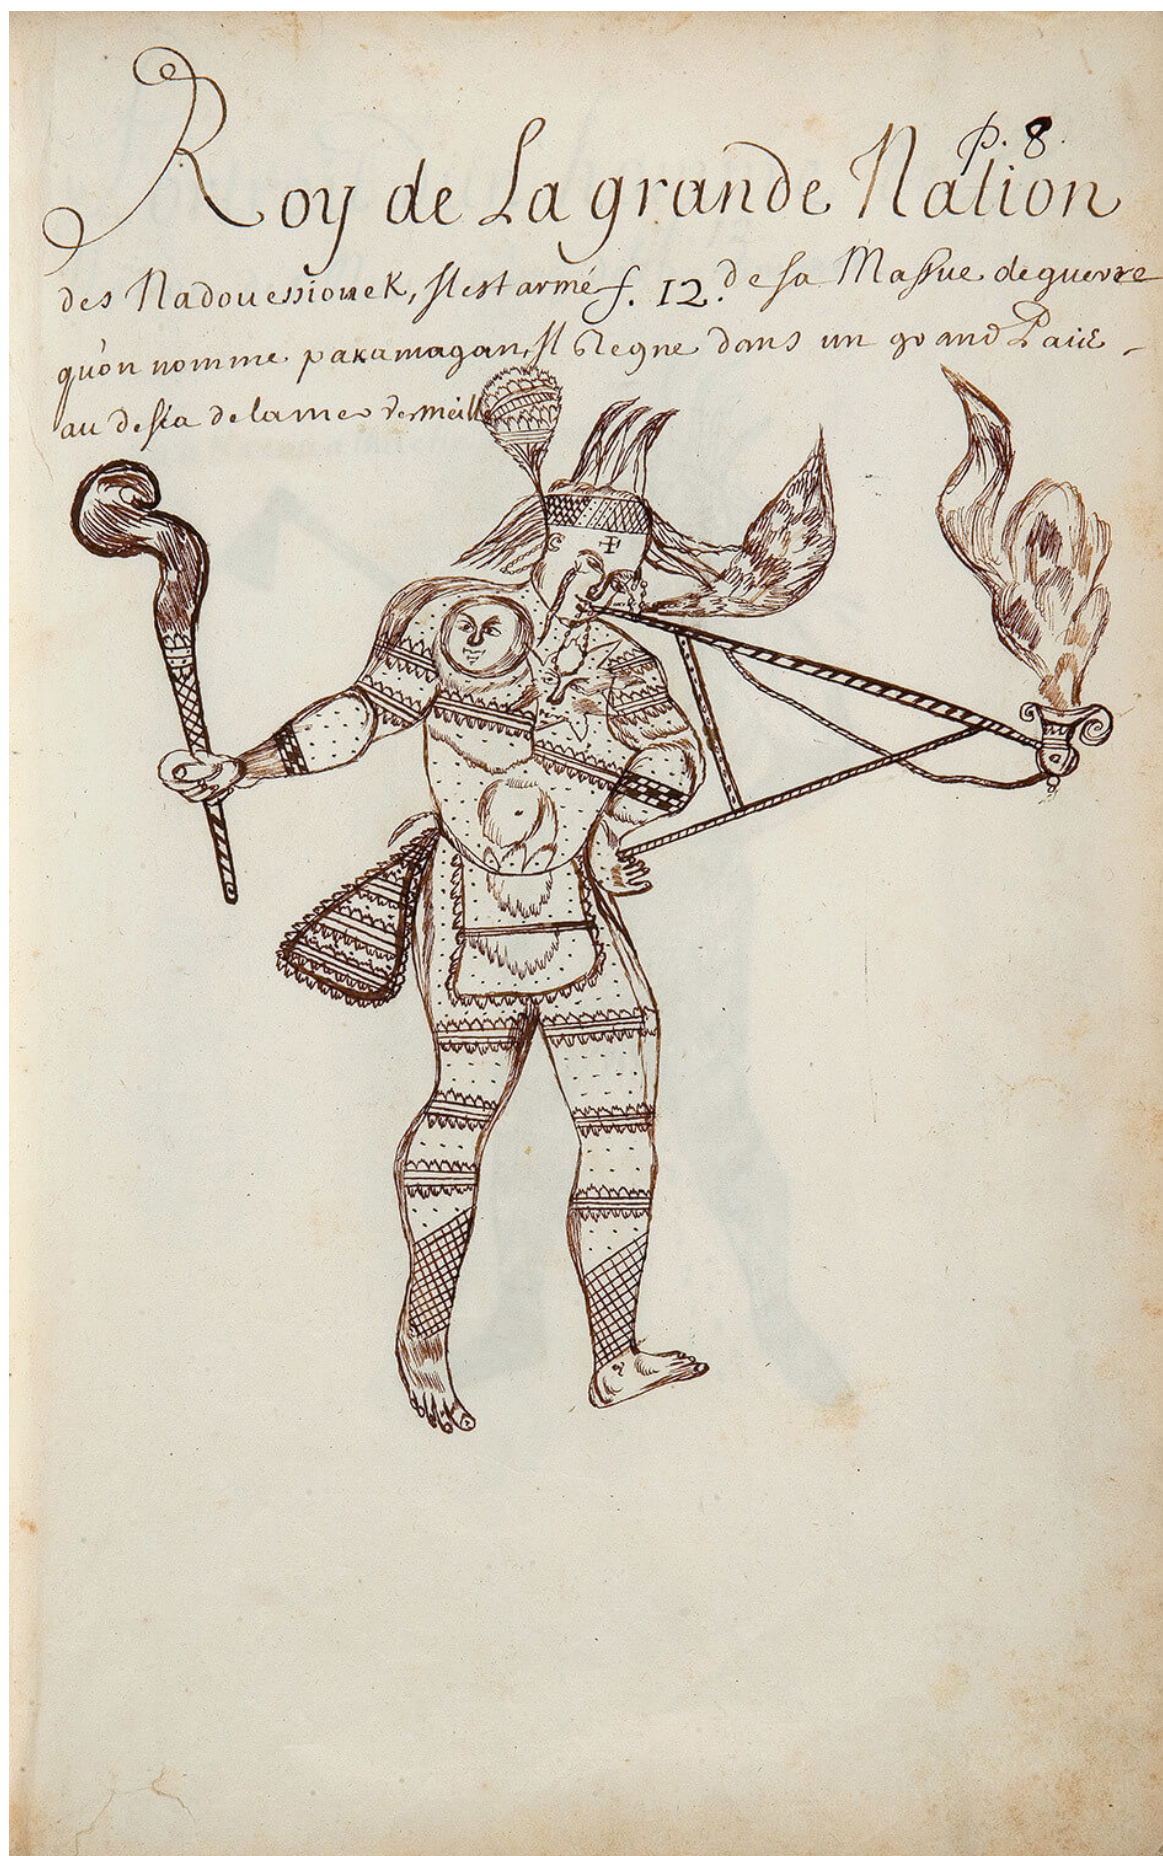 p. 8.
Roy de La grande Nation
des Nadouessiouek, Il est armé f. 12. de sa Massue de guerre
qu'on nomme pakamagan, Il Regne dans un grand Païs
au delia de la mer vermeille